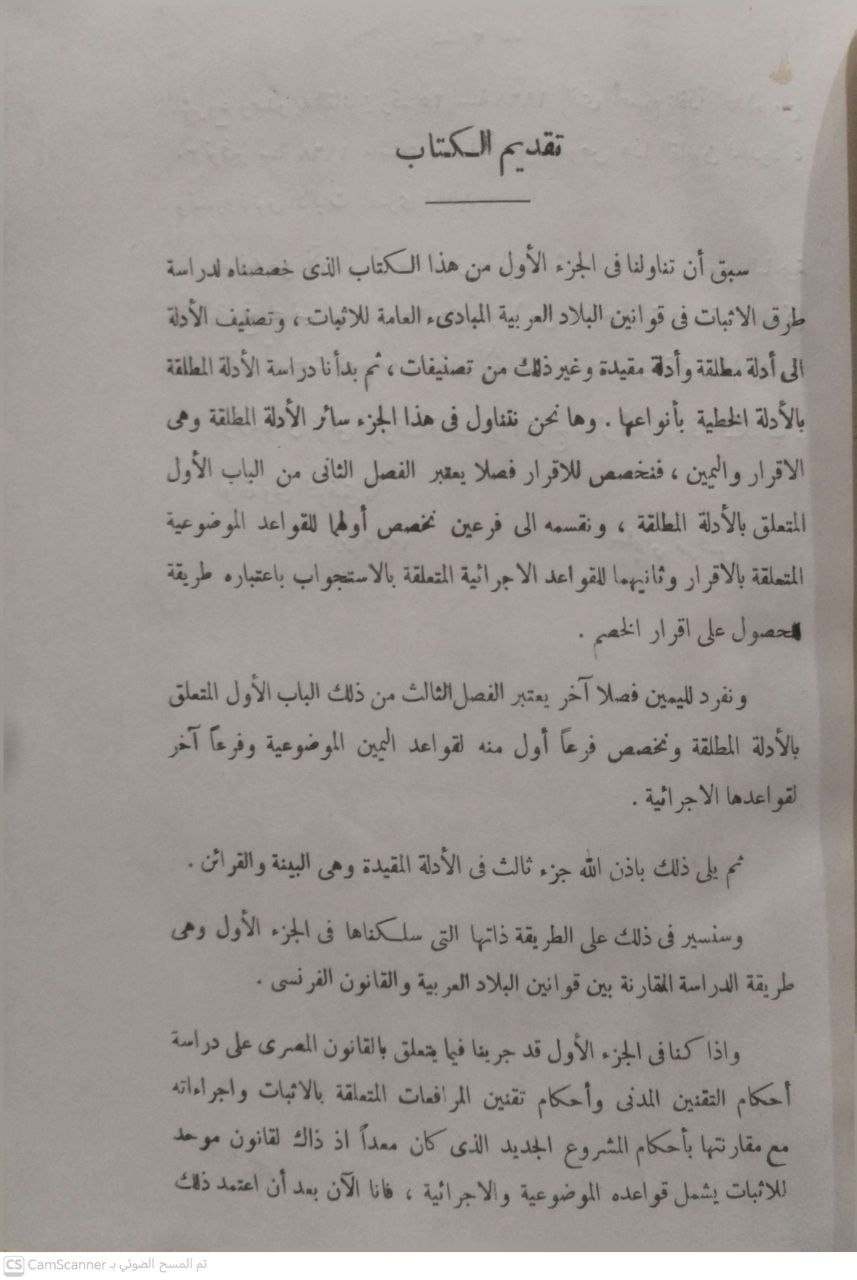 تقديم الكتاب
سبق أن تناولنا فى الجزء الأول من هذا الكتاب الذى خصصناه لدراسة
طرق الاثبات فى قوانين البلاد العربية المبادىء العامة للاثبات ، وتصنيف الأدلة
الى أدلة مطلقة وأدلة مقيدة وغير ذلك من تصنيفات ، ثم بدأنا دراسة الأدلة المطلقة
بالأدلة الخطية بأنواعها . وها نحن نتناول فى هذا الجزء سائر الأدلة المطلقة وهى
الاقرار واليمين ، فنخصص للاقرار فصلا يعتبر الفصل الثانى من الباب الأول
المتعلق بالأدلة المطلقة ، ونقسمه الى فرعين نخصص أولهما للقواعد الموضوعية
المتعلقة بالاقرار وثانيهما للقواعد الاجرائية المتعلقة بالاستجواب باعتباره طريقة
للحصول على اقرار الخصم .
ونفرد لليمين فصلا آخر يعتبر الفصل الثالث من ذلك الباب الأول المتعلق
بالأدلة المطلقة ونخصص فرعاً أول منه لقواعد اليمين الموضوعية وفرعاً آخر
لقواعدها الاجرائية .
ثم يلى ذلك باذن الله جزء ثالث فى الأدلة المقيدة وهى البينة والقرائن .
وسنسير فى ذلك على الطريقة ذاتها التى سلكناها فى الجزء الأول وهى
طريقة الدراسة المقارنة بين قوانين البلاد العربية والقانون الفرنسى .
واذا كنا فى الجزء الأول قد جرينا فيما يتعلق بالقانون المصرى على دراسة
أحكام التقنين المدنى وأحكام تقنين المرافعات المتعلقة بالاثبات واجراءاته
مع مقارنتها بأحكام المشروع الجديد الذى كان معداً اذ ذاك لقانون موحد
للاثبات يشمل قواعده الموضوعية والاجرائية ، فانا الآن بعد أن اعتمد ذلك
CS CamScanner تم المسح الضوئي بـ